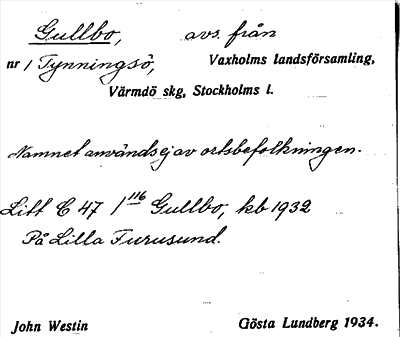 Gullbo, avs. från
nr 1 Tynningsö, Vaxholms landsförsamling,
Värmdö skg, Stockholms l.
Namnet användsej av ortsbefolkningen.
Litt C 47 /116 Gullbo, kb 1932
På Lilla Furusund.
John Westin Gösta Lundberg 1934.